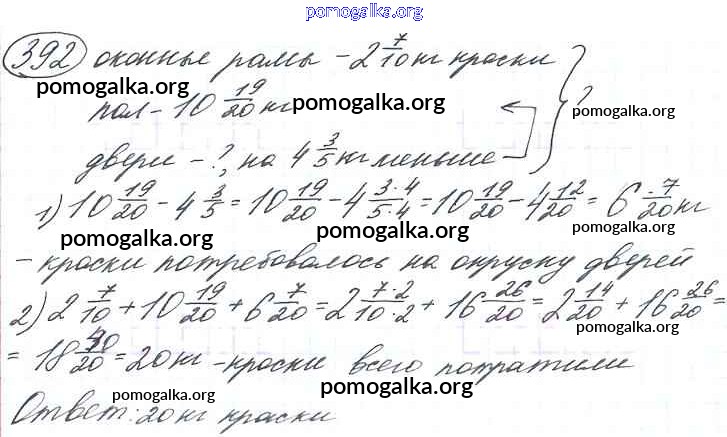 pomogalka.org
392 оконные рамы - 2 7/10 кг краски
pomogalka.org pomogalka.org
пол - 10 19/20 кг pomogalka.org pomogalka.org } ?
двери - ?, на 4 3/5 кг меньше
1) 10 19/20 - 4 3/5 = 10 19/20 - 4 3·4/5·4 = 10 19/20 - 4 12/20 = 6 7/20 кг
pomogalka.org pomogalka.org pomogalka.org
- краски потребовалось на окруску дверей
2) 2 7/10 + 10 19/20 + 6 7/20 = 2 7·2/10·2 + 16 26/20 = 2 14/20 + 16 26/20 =
pomogalka.org pomogalka.org pomogalka.org
= 18 40/20 = 20 кг - краски всего потратили
pomogalka.org pomogalka.org
Ответ: 20 кг краски